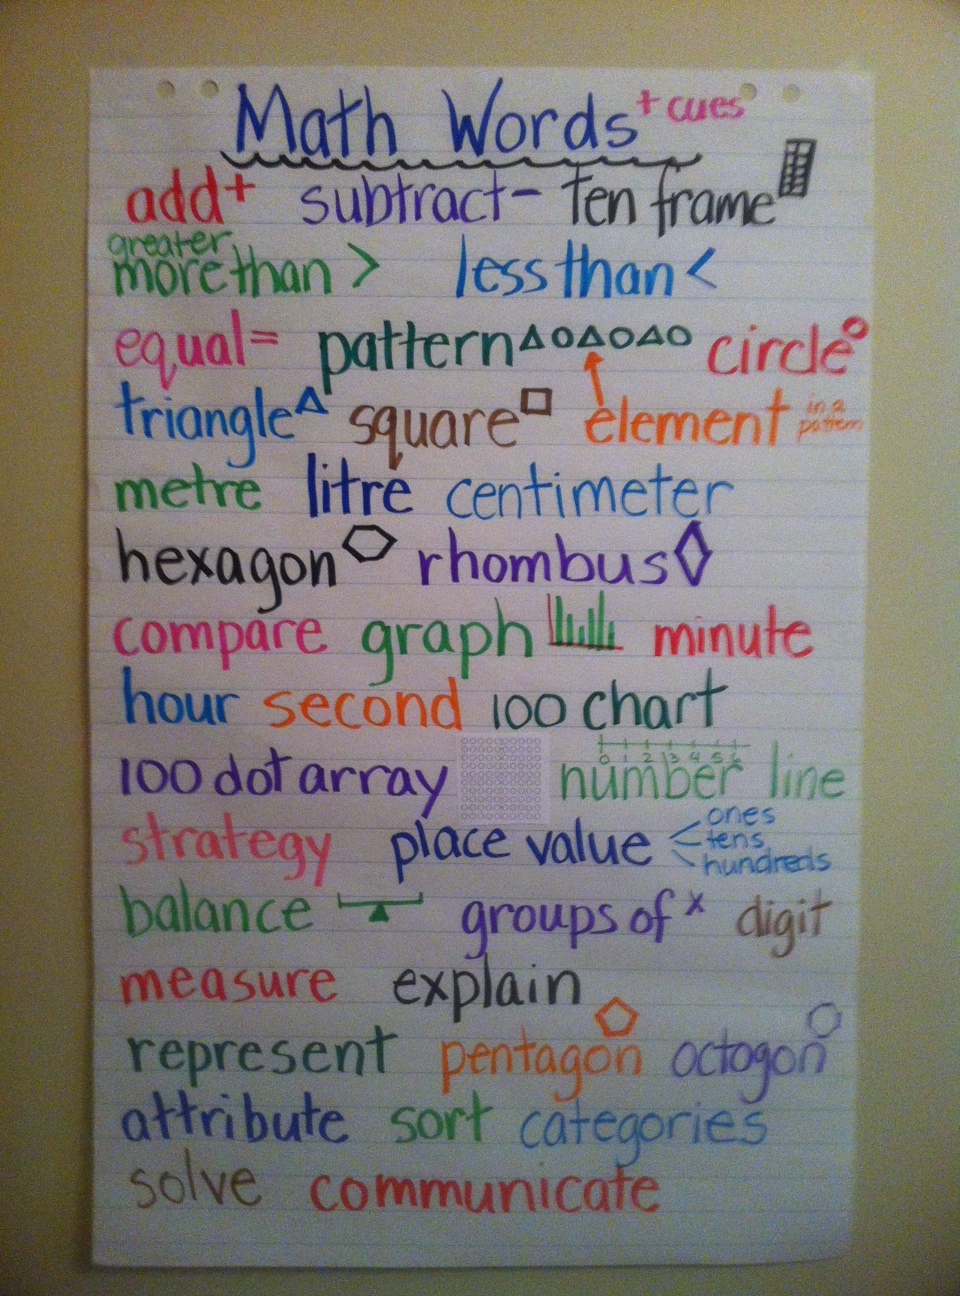 Math Words + cues
add + subtract - ten frame
greater
more than > less than <
equal = pattern circle
triangle square element in a pattern
metre litre centimeter
hexagon rhombus
compare graph minute
hour second 100 chart
0 1 2 3 4 5 6
100 dot array number line
strategy place value ones
tens
hundreds
balance groups of x digit
measure explain
represent pentagon octogon
attribute sort categories
solve communicate